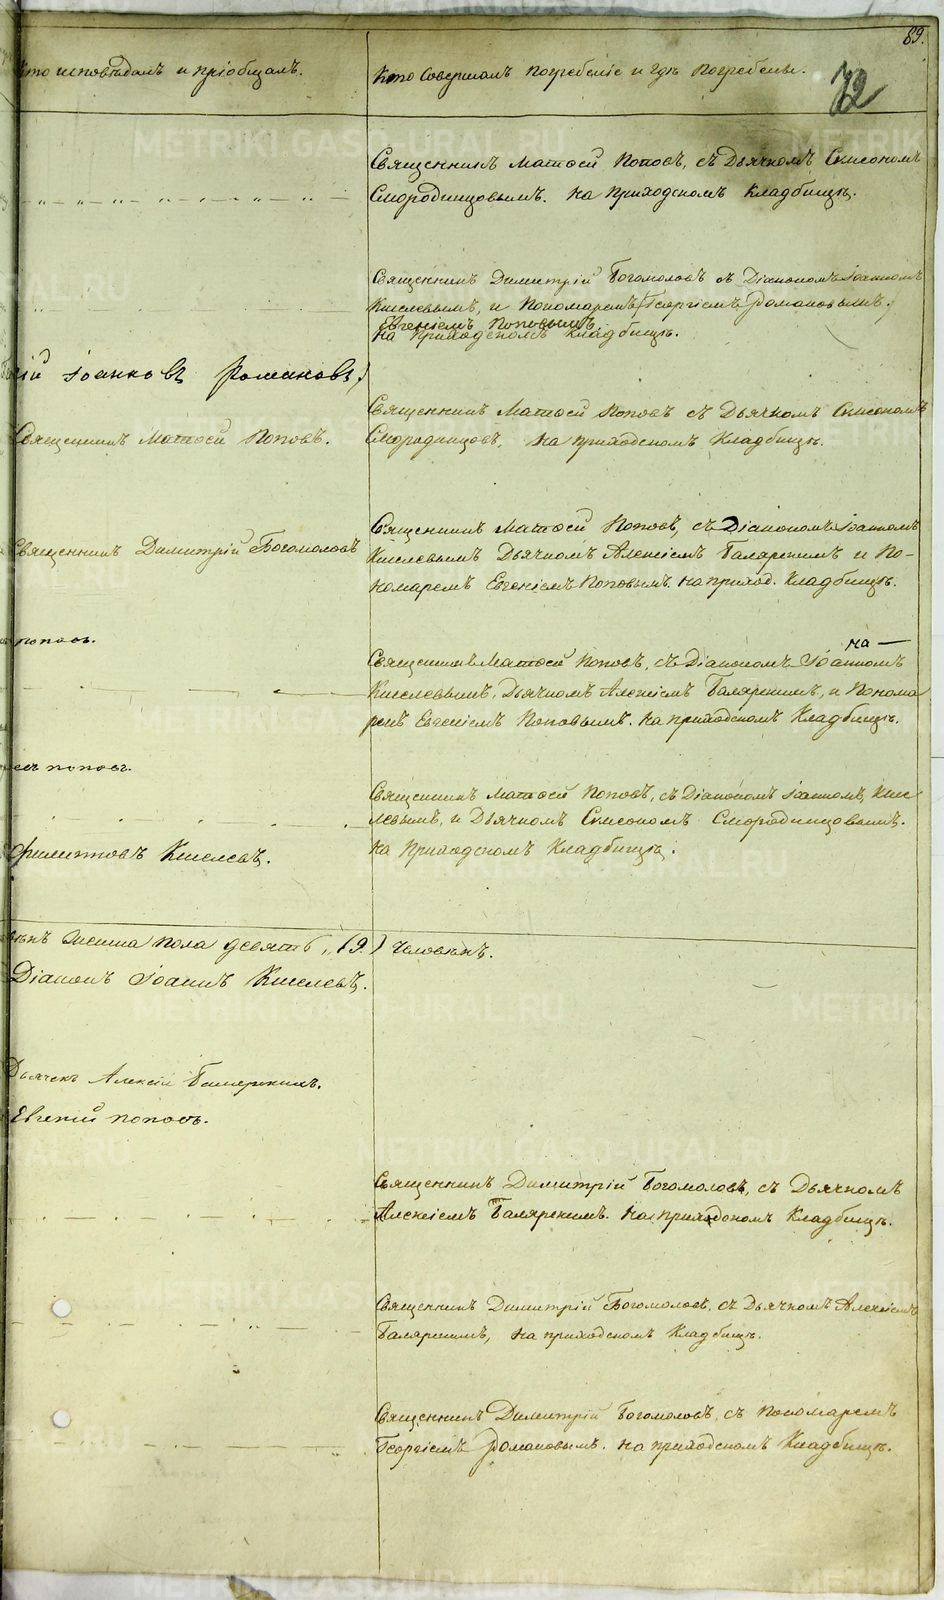 89.
72
Кто исповѣдалъ и пріобщалъ.
Кто Совершалъ Погребеніе и гдѣ Погребены.
Священникъ Матѳей Поповъ, съ Дьячкомъ Симеономъ
Смородинцовымъ. на приходскомъ Кладбищѣ.
Священникъ Димитрій Богомоловъ съ Діакономъ Іоанномъ
Киселевымъ, и Пономаремъ (Георгіемъ Романовымъ)
Евгеніемъ Поповымъ
на Приходскомъ Кладбищѣ.
гій Іоанновъ Романовъ)
Священникъ Матѳей Поповъ.
Священникъ Матѳей Поповъ съ Дьячкомъ Симеономъ
Смородинцовъ, на приходскомъ Кладбищѣ.
Священникъ Димитрій Богомоловъ
Священникъ Матѳей Поповъ, съ Діакономъ Іоанномъ
Киселевымъ Дьячкомъ Алексіемъ Баляркинымъ и По-
номаремъ Евгеніемъ Поповымъ на приход. Кладбищѣ.
поповъ.
на —
Священникъ Матѳей Поповъ, съ Діакономъ Іоанномъ
Киселевымъ, Дьячкомъ Алексіемъ Баляркинымъ, и Понома
ремъ Евгеніемъ Поповымъ. на приходскомъ Кладбищѣ.
поповъ.
Священникъ Матѳей Поповъ, съ Діакономъ Іоанномъ, Кисе
левымъ, и Дьячкомъ Симеономъ Смородинцовымъ.
на Приходскомъ Кладбищѣ.
Филиповъ Киселевъ.
вѣкъ Женска пола девять, (9.) Человѣкъ.
Діаконъ Іоаннъ Киселевъ.
Дьячекъ Алексій Баляркинъ.
Евгеній поповъ.
Священникъ Димитрій Богомоловъ, съ Дьячкомъ
Алексіемъ Баляркинымъ. на приходскомъ Кладбищѣ.
Священникъ Димитрій Богомоловъ, съ Дьячкомъ Алексіемъ
Баляркинымъ, на приходскомъ Кладбищѣ.
Священникъ Димитрій Богомоловъ, съ Пономаремъ
Георгіемъ Романовымъ. на приходскомъ Кладбищѣ.
METRIKI.GASO-URAL.RU